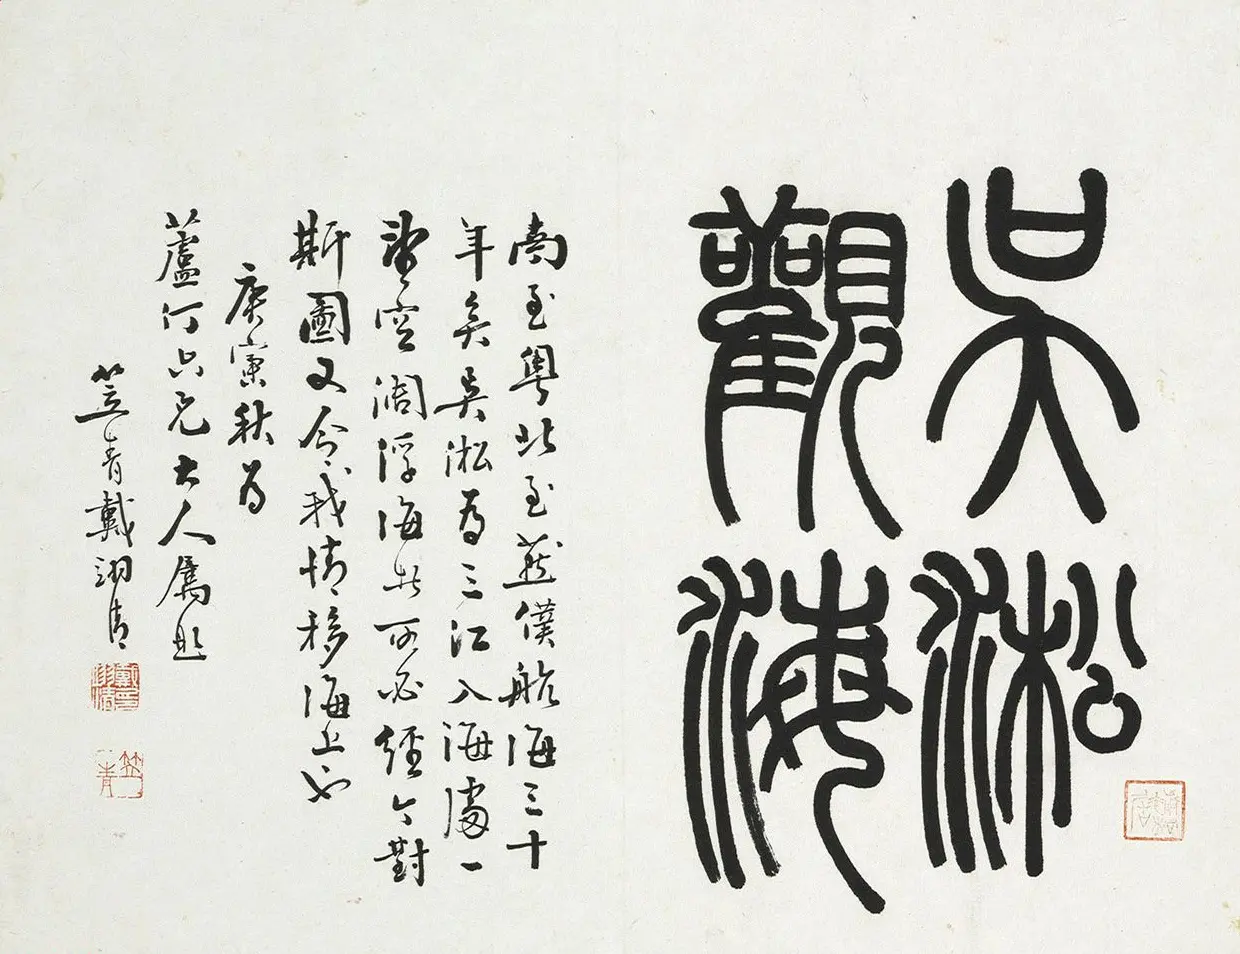 吳淞
觀海
南至粵北至燕僕航海三十
年矣吳淞為三江入海處一
望空闊浮海者所必經今對
斯圖又令我情移海上也
庚寅秋為
蘆汀六兄大人屬題
笠青戴翊清
戴印翊清
笠青